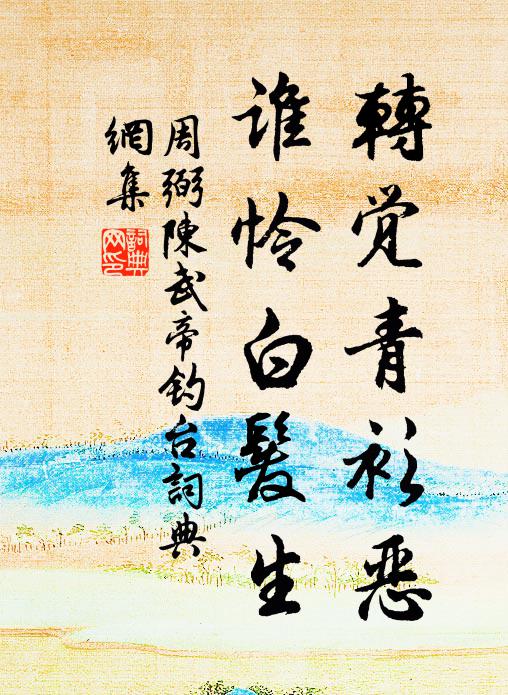 轉覚青衫恶
谁怜白髮生
周弼陳武帝钓台詞典
網集
詞典
网印